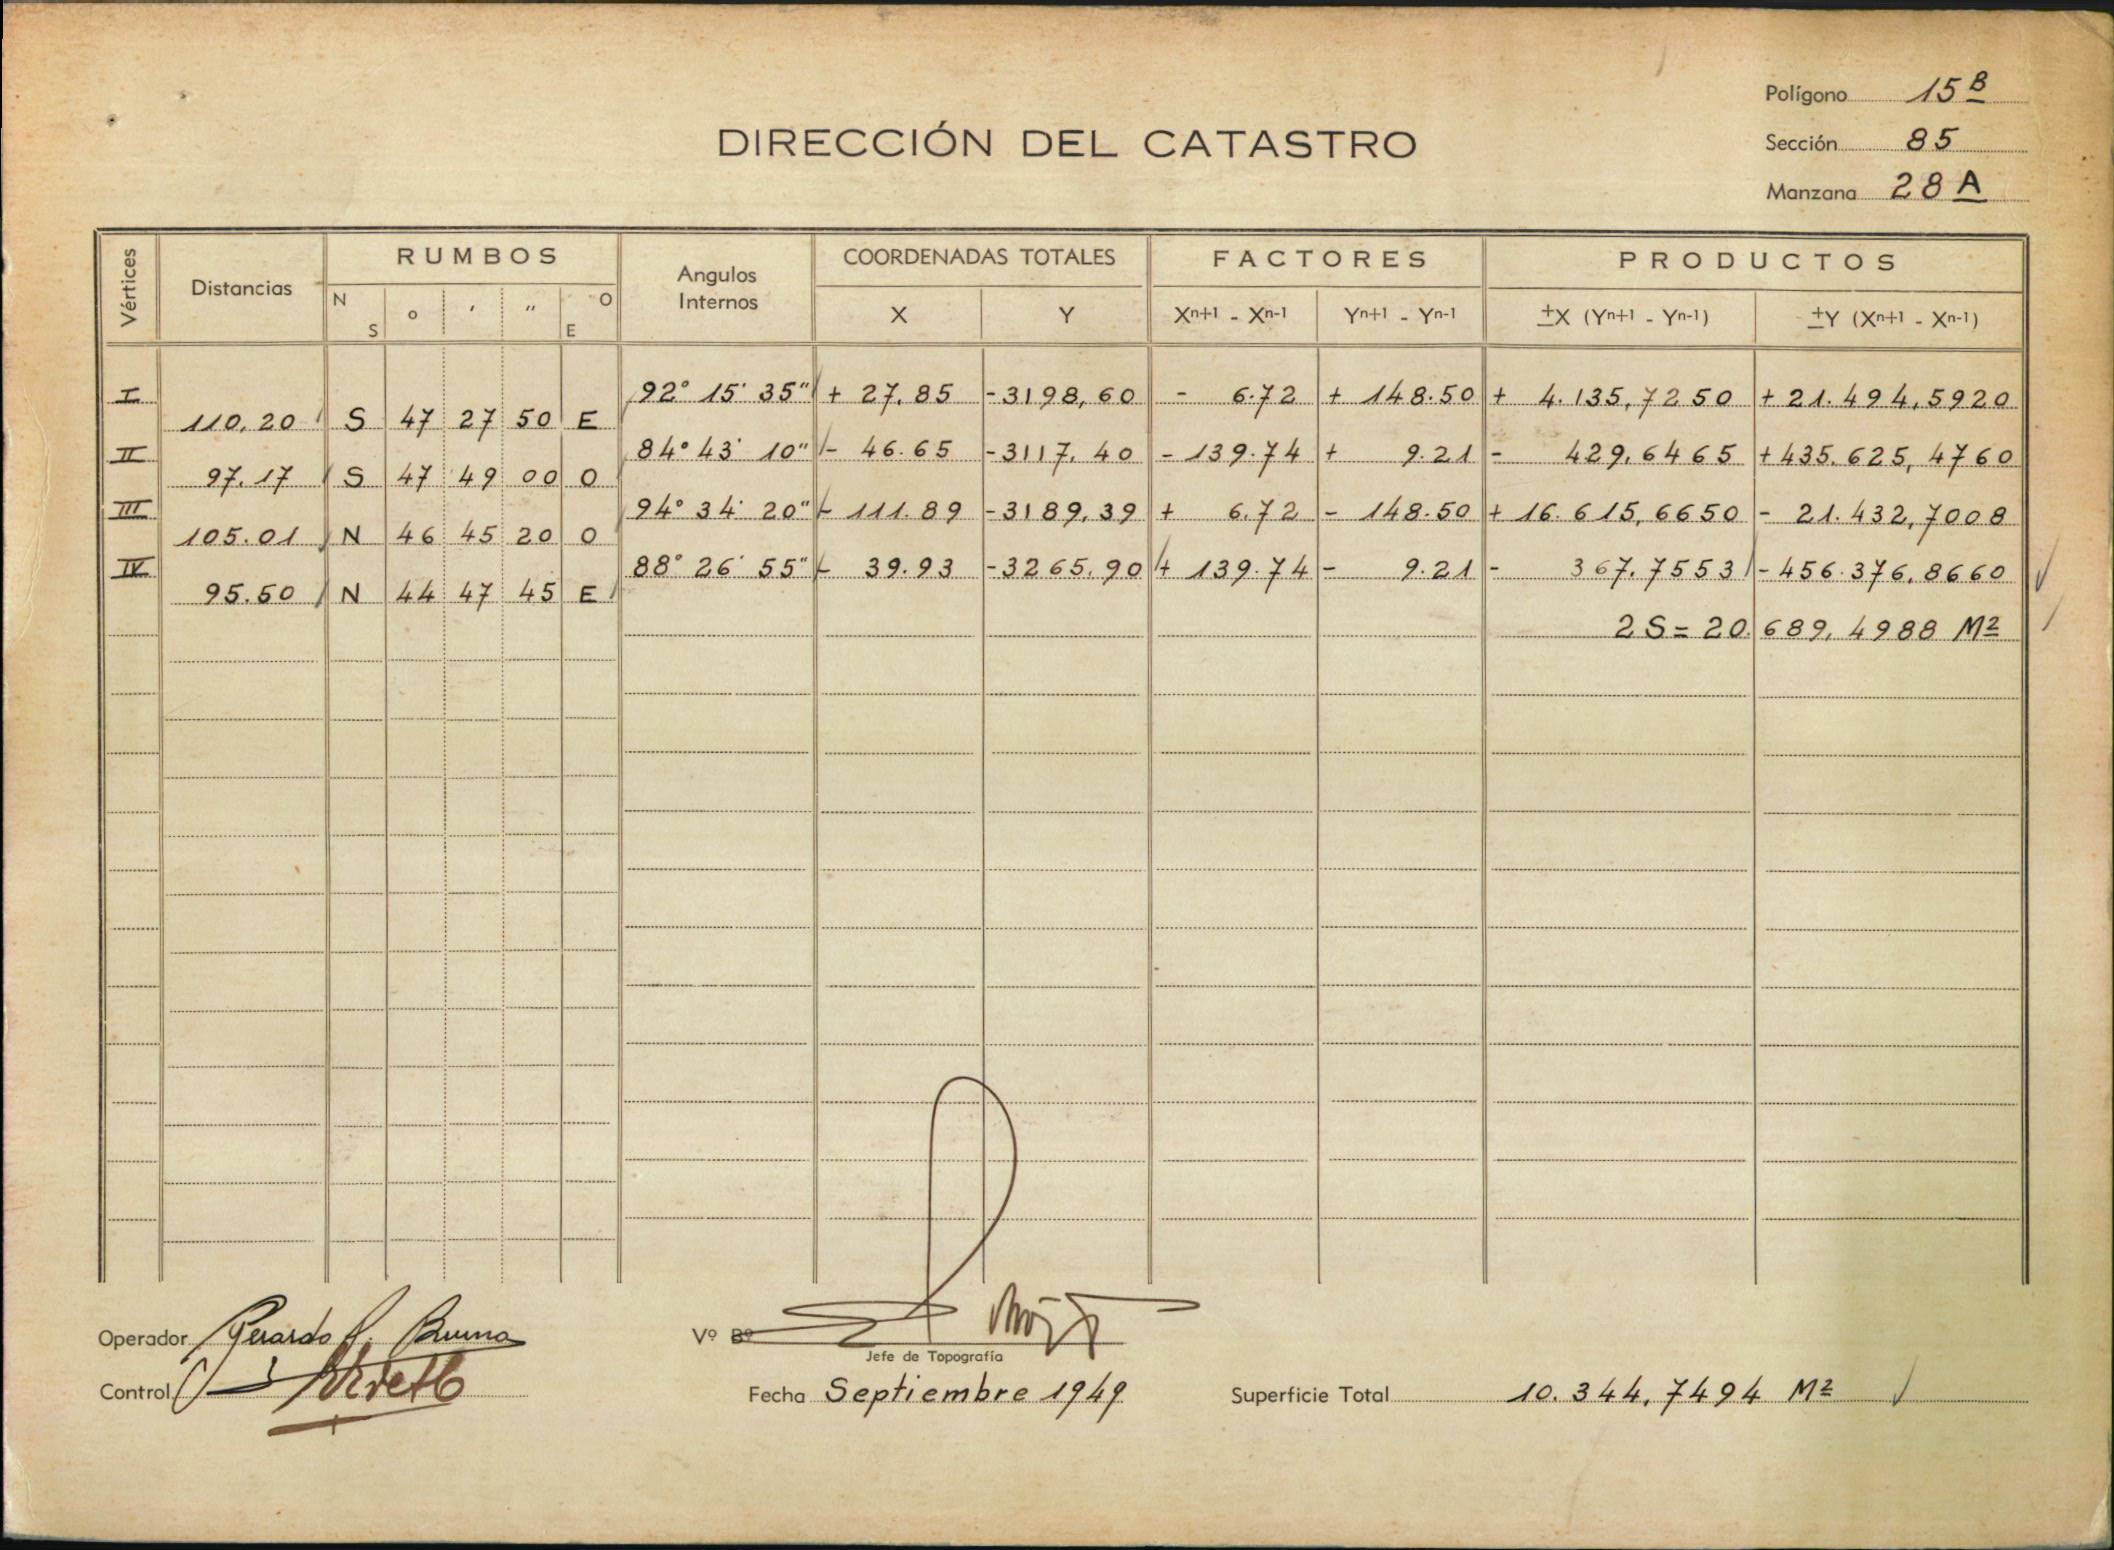 Polígono 15 B
DIRECCIÓN DEL CATASTRO
Sección 85
Manzana 28 A
Vértices Distancias RUMBOS Angulos Internos COORDENADAS TOTALES FACTORES PRODUCTOS
N S o ' " O E X Y Xn+1 - Xn-1 Yn+1 - Yn-1 ±X (Yn+1 - Yn-1) ±Y (Xn+1 - Xn-1)
I 92° 15' 35" + 27.85 -3198,60 - 6.72 + 148.50 + 4.135,7250 + 21.494,5920
110.20 S 47 27 50 E
II 84° 43' 10" - 46.65 -3117.40 - 139.74 + 9.21 - 429,6465 + 435.625,4760
97.17 S 47 49 00 O
III 94° 34' 20" - 111.89 -3189,39 + 6.72 - 148.50 + 16.615,6650 - 21.432,7008
105.01 N 46 45 20 O
IV 88° 26' 55" - 39.93 -3265.90 + 139.74 - 9.21 - 367,7553 - 456.376,8660
95.50 N 44 47 45 E
2S = 20.689,4988 M2
Operador Gerardo
Vº Bº
Jefe de Topografía
Control
Fecha Septiembre 1949
Superficie Total 10.344,7494 M2